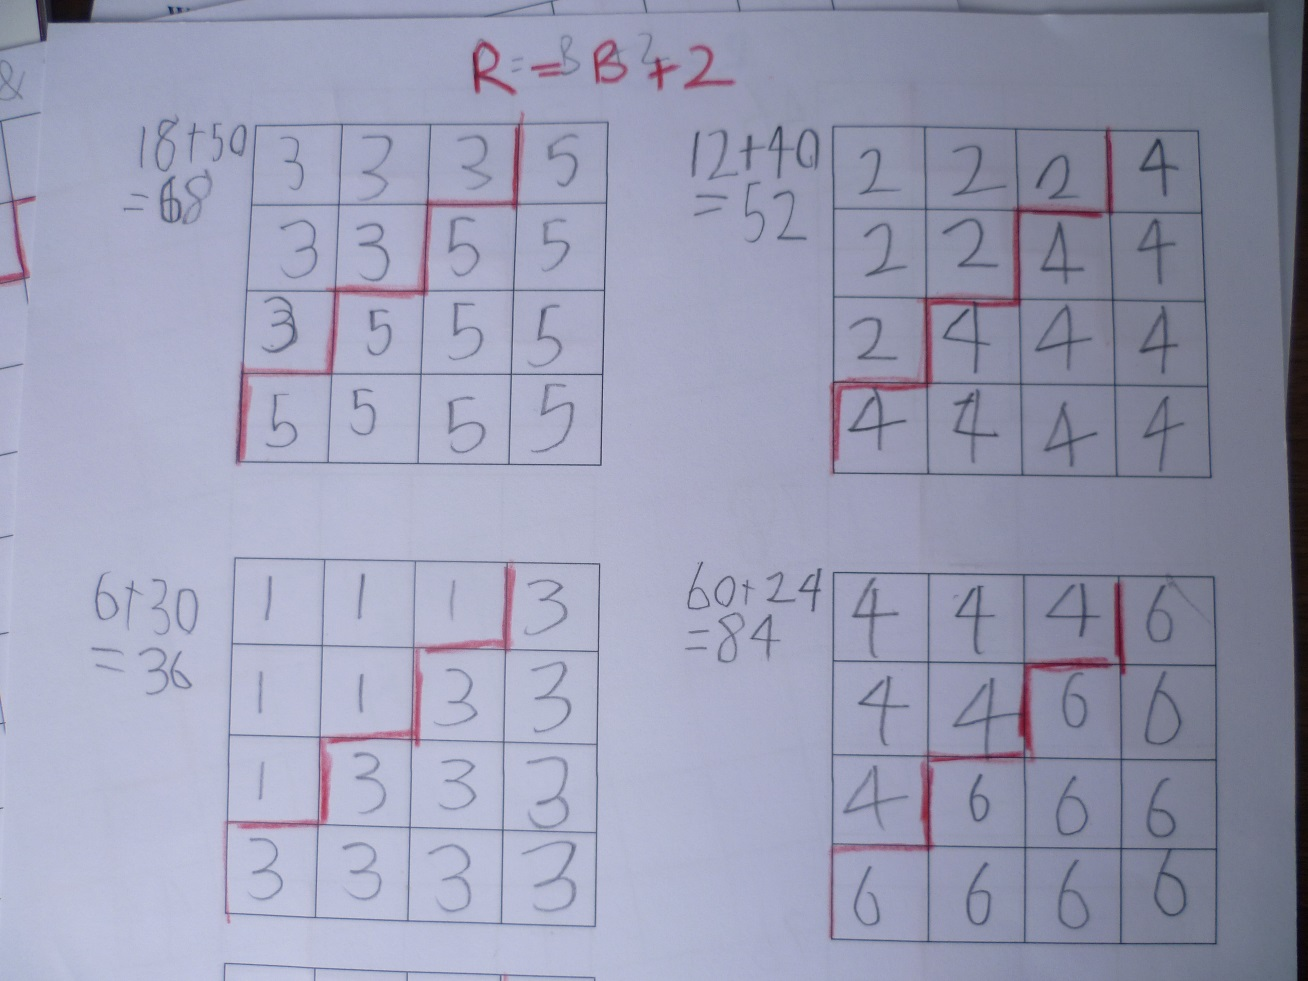 R = B + 2
18+50
=68
3 3 3 5
3 3 5 5
3 5 5 5
5 5 5 5
12+40
=52
2 2 2 4
2 2 4 4
2 4 4 4
4 4 4 4
6+30
=36
1 1 1 3
1 1 3 3
1 3 3 3
3 3 3 3
60+24
=84
4 4 4 6
4 4 6 6
4 6 6 6
6 6 6 6
&